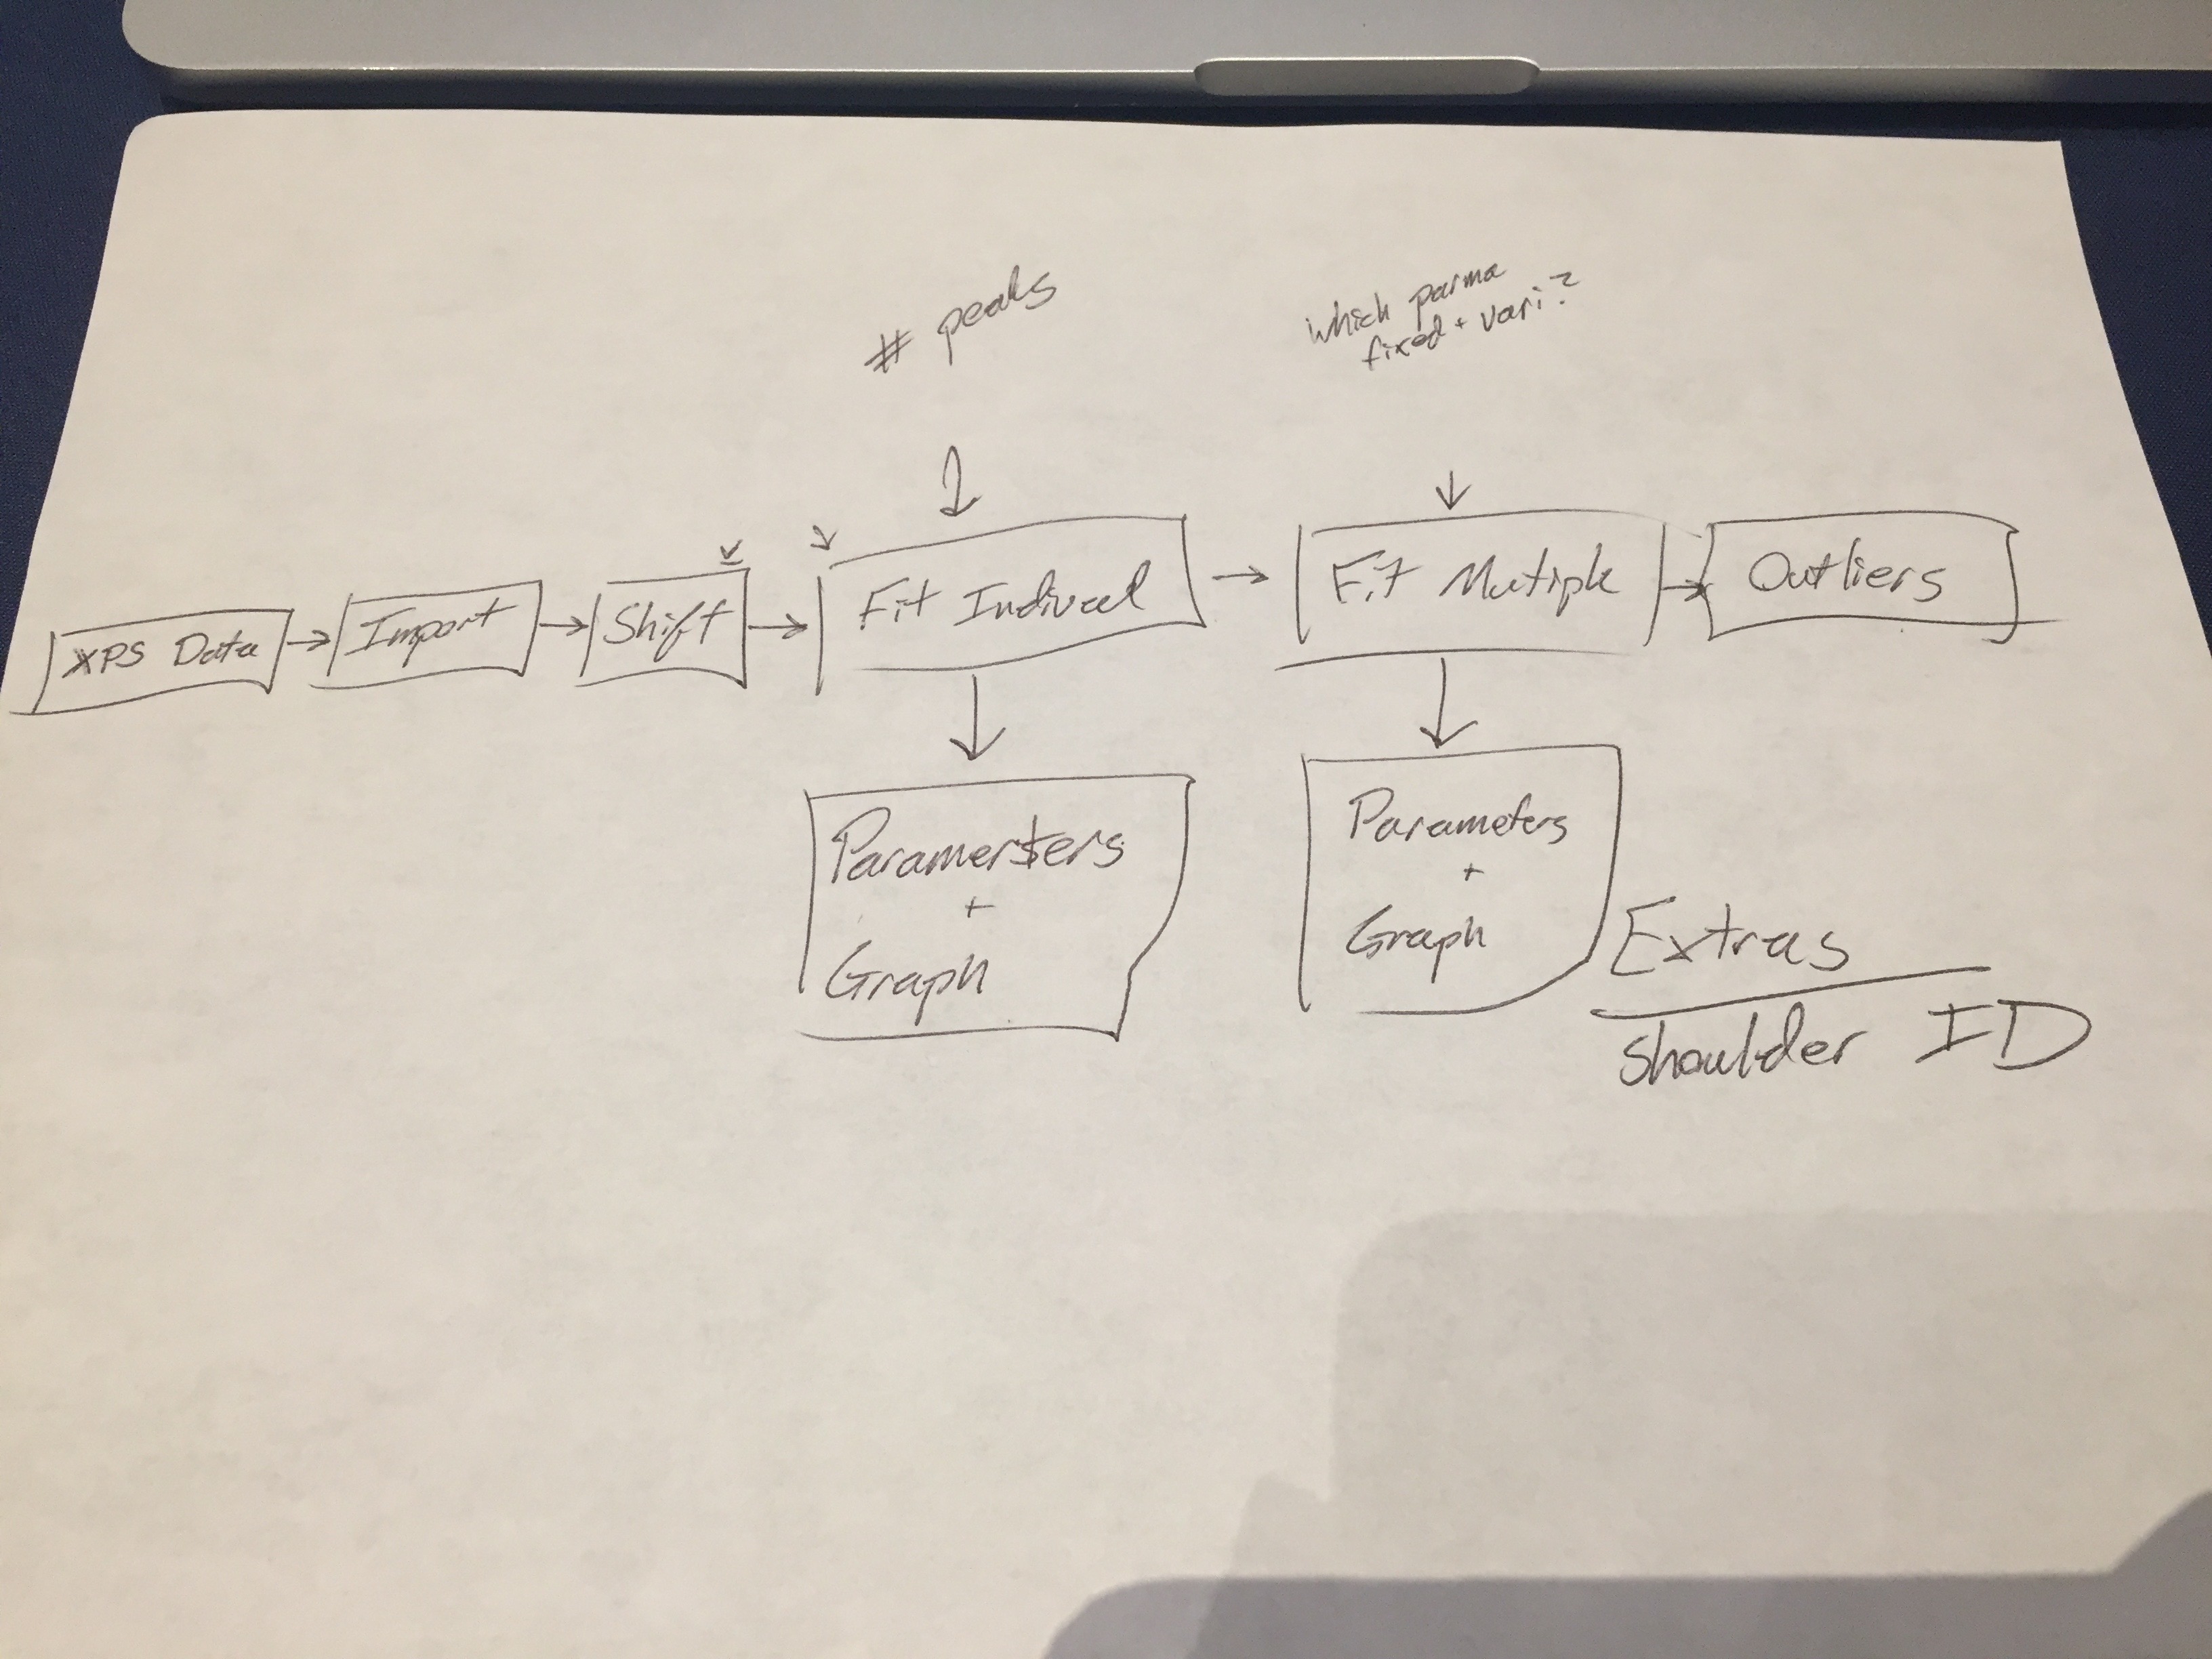 # peaks
which parma
fixed + vari?
XPS Data
Import
Shift
Fit Indiveel
Fit Mutiple
Outliers
Paramersters
+
Graph
Parameters
+
Graph
Extras
Shoulder ID